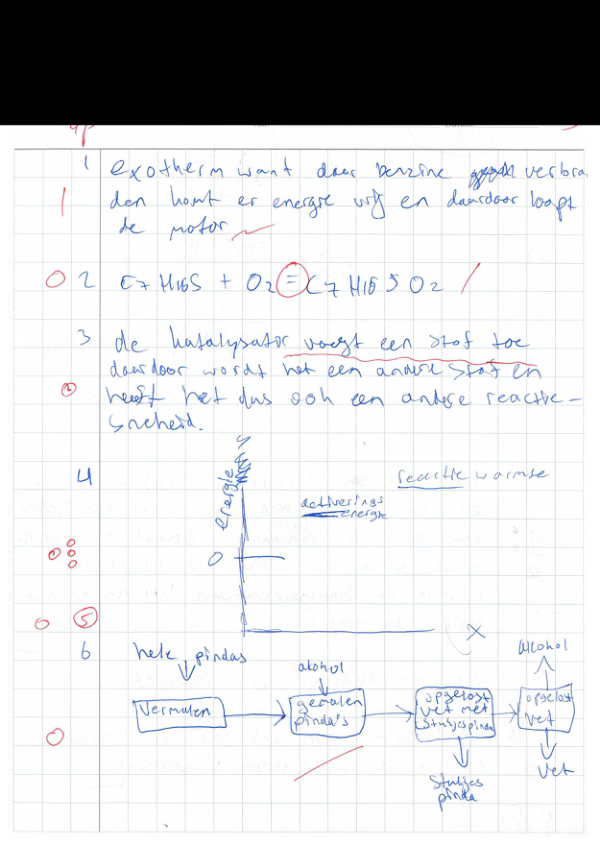 4p
1 exotherm want door benzine verbra
den komt er energie vrij en daardoor loopt
de motor
0 2 C7 H16S + O2 = C7 H16 S O2
3 de katalysator voegt een stof toe
daardoor wordt het een andere stof en
heeft het dus ook een andere reactie-
snelheid.
4 energie
reactie warmte
activerings
energie
0
x
0 5
6 hele pindas
alcohol
alcohol
Vermalen
gemalen
pinda's
opgelost
vet met
stukjes pinda
opgelost
vet
0
Stukjes
pinda
Vet